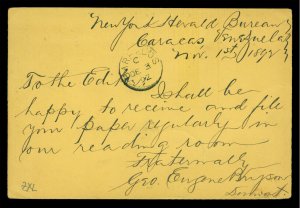 New York Herald Bureau
Caracas Venezuela
Nov. 1st 1892
To the Editor
I shall be
happy to receive and file
your paper regularly in
our reading room
Fraternally
Geo. Eugene Bryson